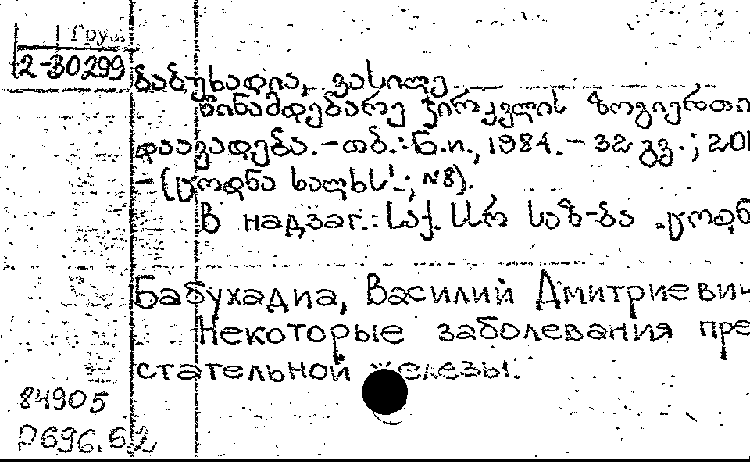 Груз
2-30299
ბაბუხადია, ვასილე
წინამდებარე ჯირკვლის ზოგიერთი
დაავადება. – თბ.: ნ.ი., 1984. – 32 გვ.;
– (ცოდნა ხალხს!; №8).
В надзаг.: საქ. სსრ საზ-ბა „ცოდნ
Бабухадиа, Василий Дмитриевич
Некоторые заболевания пре
стательной железы.
84905
Р696.62